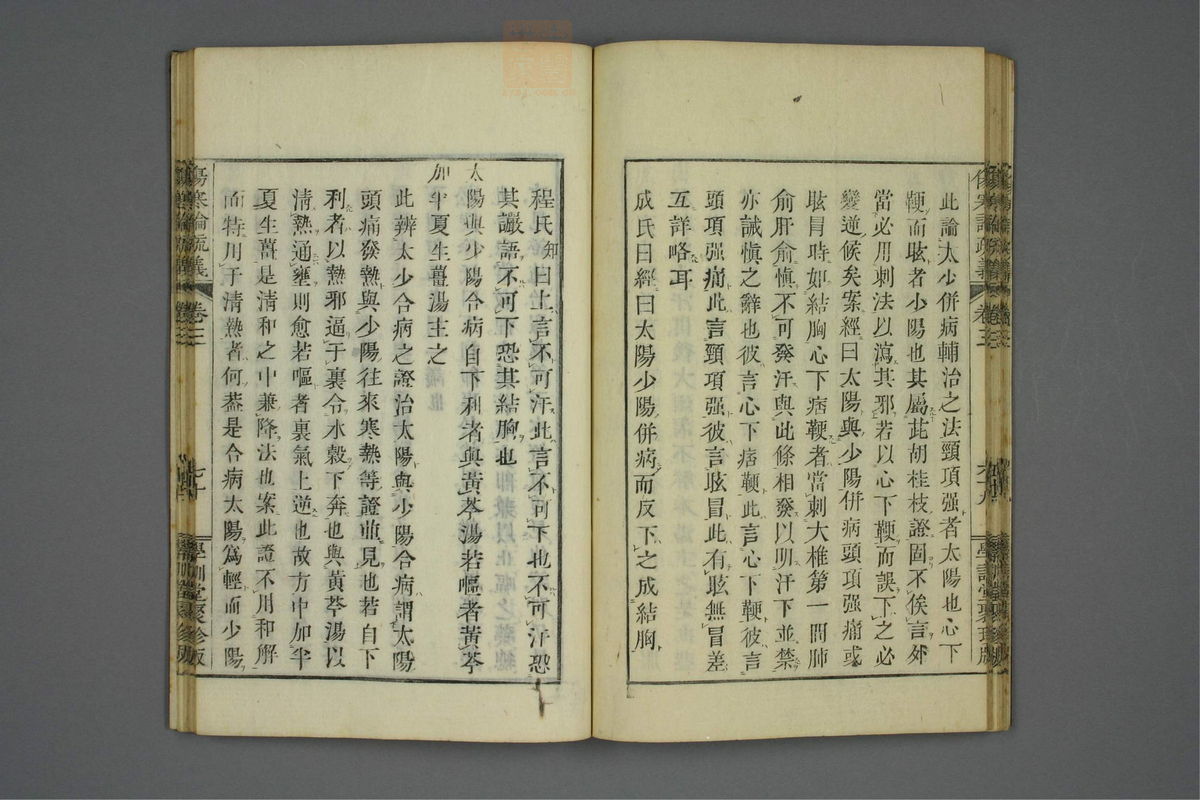 此論太少併病輔治之法頸項强者太陽也心下
鞕而眩者少陽也其屬茈胡桂枝證固不俟言外
當必用刺法以瀉其邪若以心下鞕而誤下之必
變逆候矣案經曰太陽與少陽併病頭項强痛或
眩冒時如結胸心下痞鞕者當刺大椎第一間肺
俞肝俞慎不可發汗與此條相發以明汗下並禁
亦誡慎之辭也彼言心下痞鞕此言心下鞕彼言
頭項强痛此言頸項强彼言眩冒此有眩無冒差
互詳略耳
成氏曰經曰太陽少陽併病而反下之成結胸
傷寒論疏義
卷三
六十九
學訓堂聚珍版
程氏知曰上言不可汗此言不可下也不可汗恐
其讝語不可下恐其結胸也
太陽與少陽合病自下利者與黃芩湯若嘔者黃芩
加半夏生薑湯主之
此辨太少合病之證治太陽與少陽合病謂太陽
頭痛發熱與少陽往來寒熱等證並見也若自下
利者以熱邪逼于裏令水穀下奔也與黃芩湯以
清熱通壅則愈若嘔者裏氣上逆也故方中加半
夏生薑是清和之中兼降法也案此證不用和解
而特用于清熱者何葢是合病太陽爲輕而少陽
傷寒論疏義
卷三
七十
學訓堂聚珍版